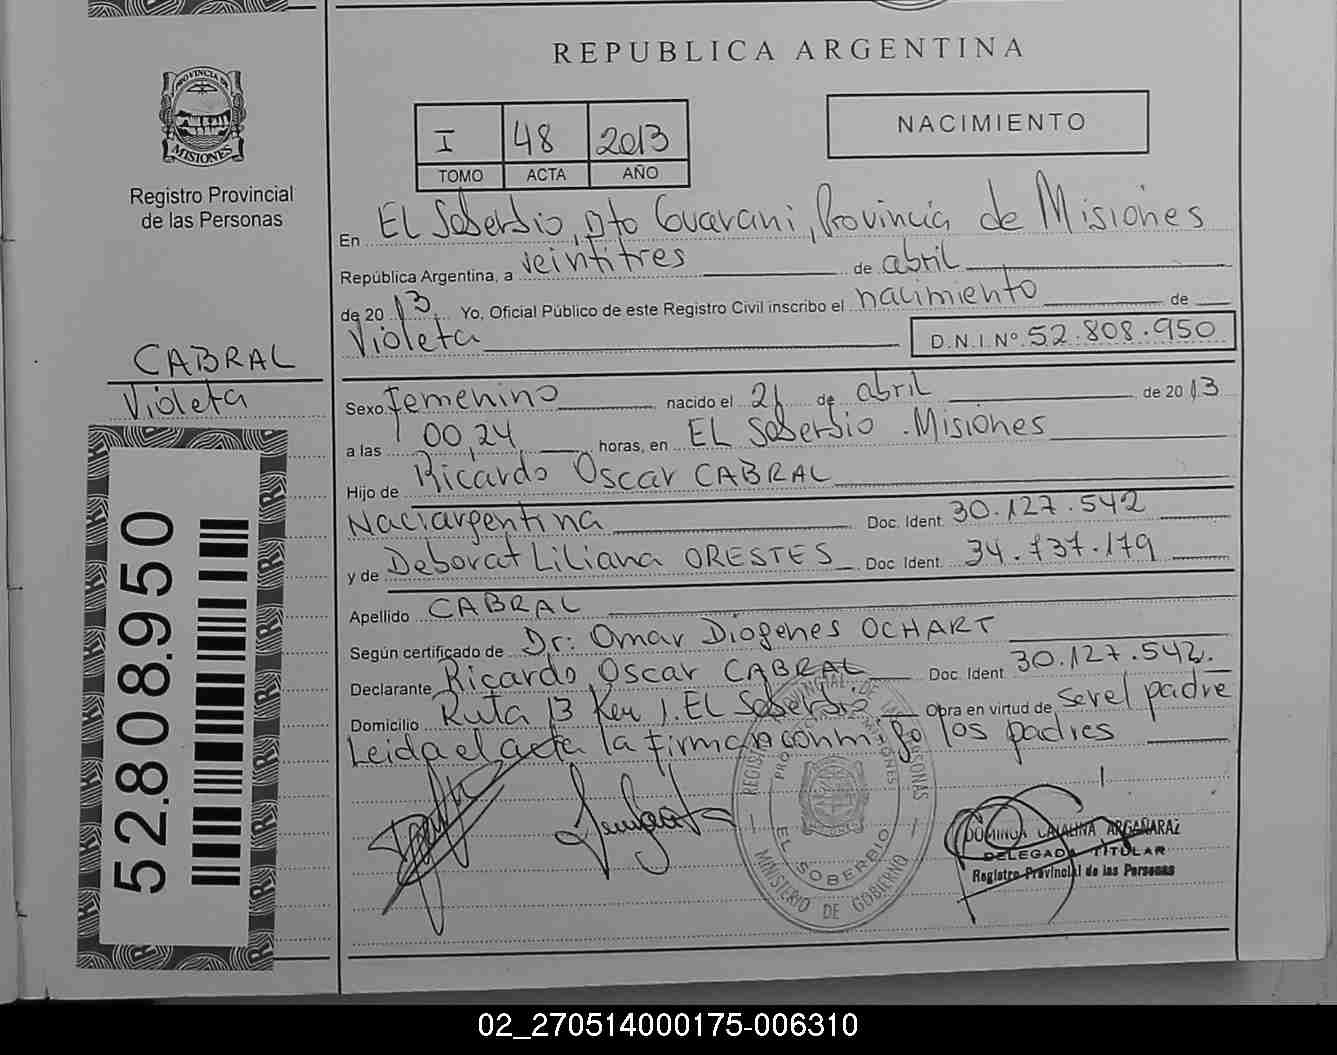 REPUBLICA ARGENTINA
PROVINCIA DE
MISIONES
Registro Provincial
de las Personas
I 48 2013
TOMO ACTA AÑO
NACIMIENTO
En EL Soberbio, Dto Guarani, Provincia de Misiones
República Argentina, a veintitres de abril
de 2013 Yo, Oficial Público de este Registro Civil inscribo el nacimiento de
Violeta D.N.I. Nº 52.808.950
CABRAL
Violeta
Sexo femenino nacido el 21 de abril de 2013
a las 00,24 horas, en EL Soberbio . Misiones
Hijo de Ricardo Oscar CABRAL
Naciargentina Doc. Ident. 30.127.542
y de Deborat Liliana ORESTES Doc. Ident. 34.737.179
Apellido CABRAL
Según certificado de Dr: Omar Diogenes OCHART
Declarante Ricardo Oscar CABRAL Doc. Ident. 30.127.542.
Domicilio Ruta 13 Km 1. EL Soberbio Obra en virtud de ser el padre
Leida el acta la firman conmigo los padres
52.808.950
EL SOBERBIO
MINISTERIO DE GOBIERNO
DOMINGA CATALINA ARGAÑARAZ
DELEGADA TITULAR
Registro Provincial de las Personas
02_270514000175-006310